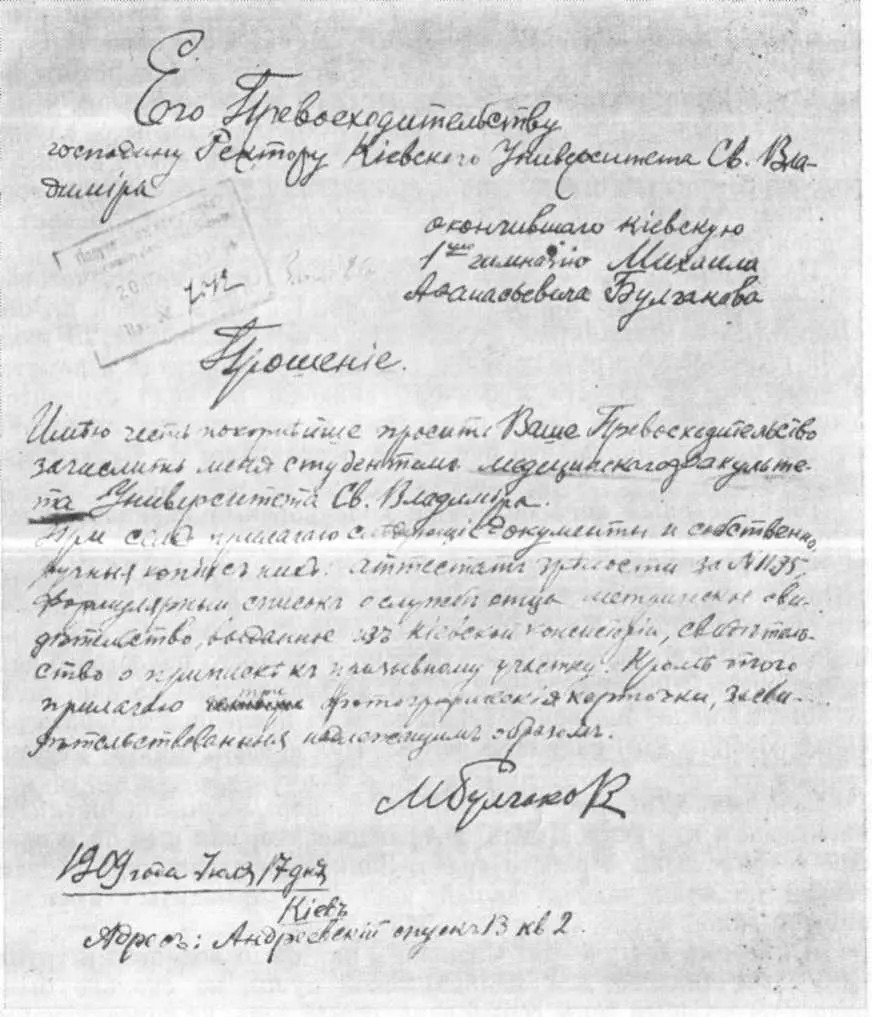 Его Превосходительству
господину Ректору Кіевского Университета Св. Вла-
диміра
окончившаго Кіевскую
1ую гимназію Михаила
Аѳанасьевича Булгакова
Прошеніе.
Имѣю честь покорнѣйше просить Ваше Превосходительство
зачислить меня студентомъ медицинскаго факульте-
та Университета Св. Владиміра.
При семъ прилагаю слѣдующіе документы и собственно
ручныя копіи съ нихъ: аттестатъ зрѣлости за № 1135,
формулярный списокъ о службѣ отца, метрическое сви-
дѣтельство, выданное изъ Кіевской консисторіи, свидѣтель-
ство о припискѣ къ призывному участку. Кромѣ того
прилагаю три фотографическія карточки, засви-
дѣтельствованныя надлежащимъ образомъ.
МБулгаков
1909 года Іюля 17 дня
Кіевъ
Адресъ: Андреевскій спускъ 13 кв 2.